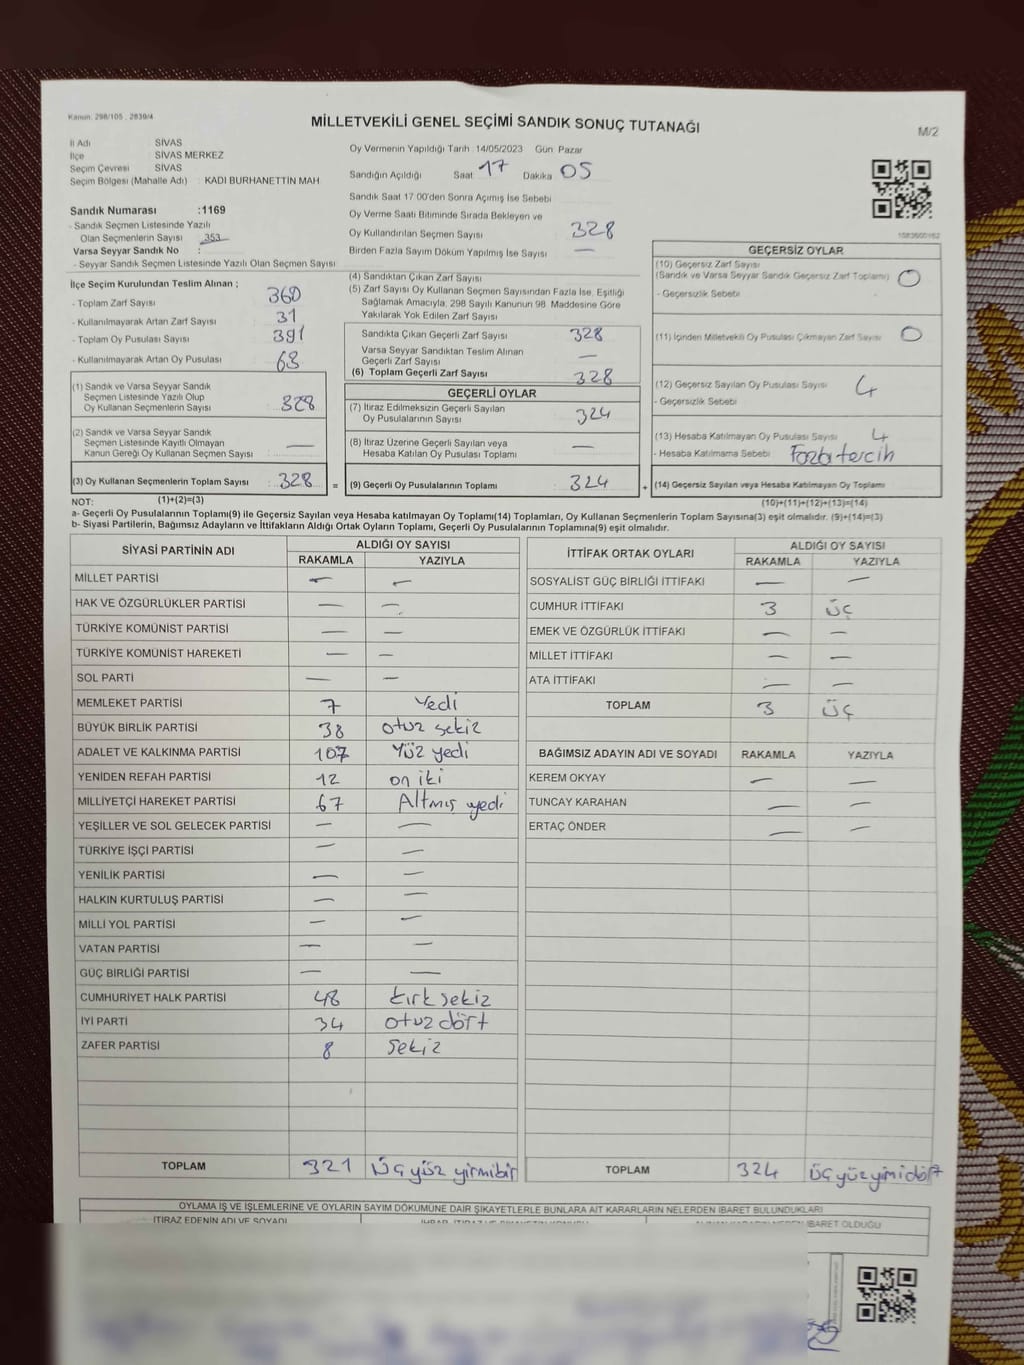 Kanun: 298/105, 2839/4
MİLLETVEKİLİ GENEL SEÇİMİ SANDIK SONUÇ TUTANAĞI
M/2
İl Adı SİVAS
İlçe SİVAS MERKEZ
Seçim Çevresi SİVAS
Seçim Bölgesi (Mahalle Adı) : KADI BURHANETTİN MAH
Oy Vermenin Yapıldığı Tarih : 14/05/2023 Gün: Pazar
Sandığın Açıldığı Saat 17 Dakika 05
Sandık Saat 17:00'den Sonra Açımış İse Sebebi
Oy Verme Saati Bitiminde Sırada Bekleyen ve
Oy Kullandırılan Seçmen Sayısı 328
Birden Fazla Sayım Döküm Yapılmış İse Sayısı —
Sandık Numarası :1169
- Sandık Seçmen Listesinde Yazılı
Olan Seçmenlerin Sayısı : 353
Varsa Seyyar Sandık No :
- Seyyar Sandık Seçmen Listesinde Yazılı Olan Seçmen Sayısı :
İlçe Seçim Kurulundan Teslim Alınan ;
- Toplam Zarf Sayısı 360
- Kullanılmayarak Artan Zarf Sayısı 31
- Toplam Oy Pusulası Sayısı 391
- Kullanılmayarak Artan Oy Pusulası 63
(1) Sandık ve Varsa Seyyar Sandık
Seçmen Listesinde Yazılı Olup
Oy Kullanan Seçmenlerin Sayısı : 328
(2) Sandık ve Varsa Seyyar Sandık
Seçmen Listesinde Kayıtlı Olmayan
Kanun Gereği Oy Kullanan Seçmen Sayısı : —
(3) Oy Kullanan Seçmenlerin Toplam Sayısı : 328 =
(4) Sandıktan Çıkan Zarf Sayısı
(5) Zarf Sayısı Oy Kullanan Seçmen Sayısından Fazla İse, Eşitliği
Sağlamak Amacıyla, 298 Sayılı Kanunun 98. Maddesine Göre
Yakılarak Yok Edilen Zarf Sayısı
Sandıkta Çıkan Geçerli Zarf Sayısı 328
Varsa Seyyar Sandıktan Teslim Alınan
Geçerli Zarf Sayısı —
(6) Toplam Geçerli Zarf Sayısı 328
GEÇERLİ OYLAR
(7) İtiraz Edilmeksizin Geçerli Sayılan
Oy Pusulalarının Sayısı : 324
(8) İtiraz Üzerine Geçerli Sayılan veya
Hesaba Katılan Oy Pusulası Toplamı : —
(9) Geçerli Oy Pusulalarının Toplamı : 324 +
1583600162
GEÇERSİZ OYLAR
(10) Geçersiz Zarf Sayısı
(Sandık ve Varsa Seyyar Sandık Geçersiz Zarf Toplamı) : 0
- Geçersizlik Sebebi
(11) İçinden Milletvekili Oy Pusulası Çıkmayan Zarf Sayısı 0
(12) Geçersiz Sayılan Oy Pusulası Sayısı : 4
- Geçersizlik Sebebi
(13) Hesaba Katılmayan Oy Pusulası Sayısı : 4
- Hesaba Katılmama Sebebi : Fazla tercih
(14) Geçersiz Sayılan veya Hesaba Katılmayan Oy Toplamı
NOT: (1)+(2)=(3) (10)+(11)+(12)+(13)=(14)
a- Geçerli Oy Pusulalarının Toplamı(9) ile Geçersiz Sayılan veya Hesaba katılmayan Oy Toplamı(14) Toplamları, Oy Kullanan Seçmenlerin Toplam Sayısına(3) eşit olmalıdır. (9)+(14)=(3)
b- Siyasi Partilerin, Bağımsız Adayların ve İttifakların Aldığı Ortak Oyların Toplamı, Geçerli Oy Pusulalarının Toplamına(9) eşit olmalıdır.
SİYASİ PARTİNİN ADI ALDIĞI OY SAYISI
RAKAMLA YAZIYLA
MİLLET PARTİSİ — —
HAK VE ÖZGÜRLÜKLER PARTİSİ — —
TÜRKİYE KOMÜNİST PARTİSİ — —
TÜRKİYE KOMÜNİST HAREKETİ — —
SOL PARTİ — —
MEMLEKET PARTİSİ 7 Yedi
BÜYÜK BİRLİK PARTİSİ 38 otuz sekiz
ADALET VE KALKINMA PARTİSİ 107 Yüz yedi
YENİDEN REFAH PARTİSİ 12 on iki
MİLLİYETÇİ HAREKET PARTİSİ 67 Altmış yedi
YEŞİLLER VE SOL GELECEK PARTİSİ — —
TÜRKİYE İŞÇİ PARTİSİ — —
YENİLİK PARTİSİ — —
HALKIN KURTULUŞ PARTİSİ — —
MİLLİ YOL PARTİSİ — —
VATAN PARTİSİ — —
GÜÇ BİRLİĞİ PARTİSİ — —
CUMHURİYET HALK PARTİSİ 48 kırk sekiz
İYİ PARTİ 34 otuz dört
ZAFER PARTİSİ 8 Sekiz
TOPLAM 321 Üç yüz yirmibir
İTTİFAK ORTAK OYLARI ALDIĞI OY SAYISI
RAKAMLA YAZIYLA
SOSYALİST GÜÇ BİRLİĞİ İTTİFAKI — —
CUMHUR İTTİFAKI 3 üç
EMEK VE ÖZGÜRLÜK İTTİFAKI — —
MİLLET İTTİFAKI — —
ATA İTTİFAKI — —
TOPLAM 3 üç
BAĞIMSIZ ADAYIN ADI VE SOYADI RAKAMLA YAZIYLA
KEREM OKYAY — —
TUNCAY KARAHAN — —
ERTAÇ ÖNDER — —
TOPLAM 324 üç yüz yimidört
OYLAMA İŞ VE İŞLEMLERİNE VE OYLARIN SAYIM DÖKÜMÜNE DAİR ŞİKAYETLERLE BUNLARA AİT KARARLARIN NELERDEN İBARET BULUNDUKLARI
İTİRAZ EDENİN ADI VE SOYADI
İBARET OLDUĞU